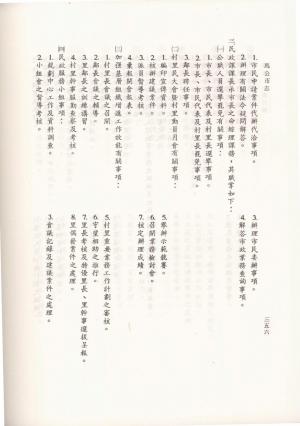 馬公市志
三五六
1. 市民申請案件代辦代洽事項。
2. 辦理有關法令疑問解答。
3. 辦理市民委辦事項。
4. 解答市政業務查詢事項。
三、民政課課長承市長之命綜理課務，其職掌如下：
㈠公職人員選舉罷免有關事項：
1. 市長、市民代表及村里長選舉事項。
2. 市長、市民代表及村里長罷免事項。
3. 鄰長聘任事項。
㈡村里民大會暨村里動員月會有關事項：
1. 編印宣傳資料。
2. 核辦建議案件。
3. 派員督導考核。
4. 彙報開會報表。
5. 舉辦示範觀摩。
6. 召開業務檢討會。
7. 核定辦理成績。
㈢加強基層組織增進工作效能有關事項：
1. 村里長會議之召開。
2. 鄰長會議之輔導。
3. 里鄰長之訓練講習。
4. 村里幹事區勤查察及考核。
5. 村里重要業務工作計劃之審核。
6. 守望相助之推行。
7. 里長考核及特優里長、里幹事選拔呈報。
8. 里偶發案件之處理。
㈣民政服務小組事項：
1. 規劃中心工作及資料調查。
2. 小組會之督導考核。
3. 會議記錄及建議案件之處理。